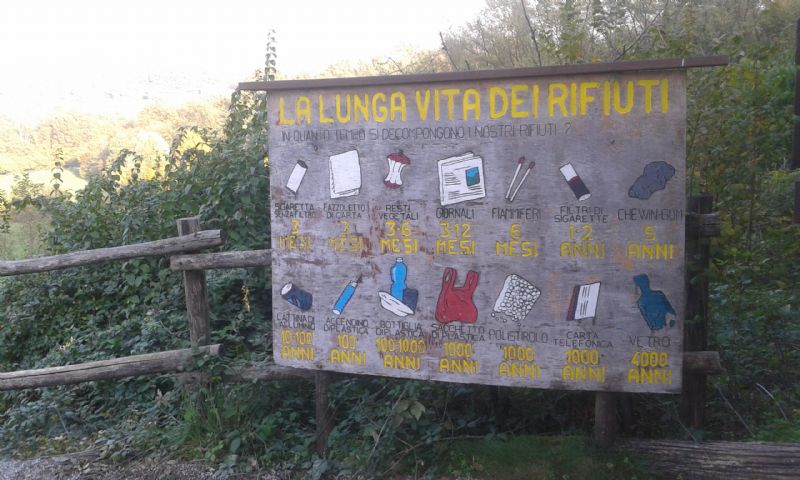 LA LUNGA VITA DEI RIFIUTI
IN QUANTO TEMPO SI DECOMPONGONO I NOSTRI RIFIUTI ?
SIGARETTA SENZA FILTRO
3 MESI
FAZZOLETTO DI CARTA
3 MESI
RESTI VEGETALI
3-6 MESI
GIORNALI
3-12 MESI
FIAMMIFERI
6 MESI
FILTRI DI SIGARETTE
1-2 ANNI
CHEWIN-GUM
5 ANNI
LATTINA DI ALLUMINIO
10-100 ANNI
ACCENDINO DI PLASTICA
100 ANNI
BOTTIGLIA DI PLASTICA
100-1000 ANNI
SACCHETTO DI PLASTICA
1000 ANNI
POLISTIROLO
1000 ANNI
CARTA TELEFONICA
1000 ANNI
VETRO
4000 ANNI